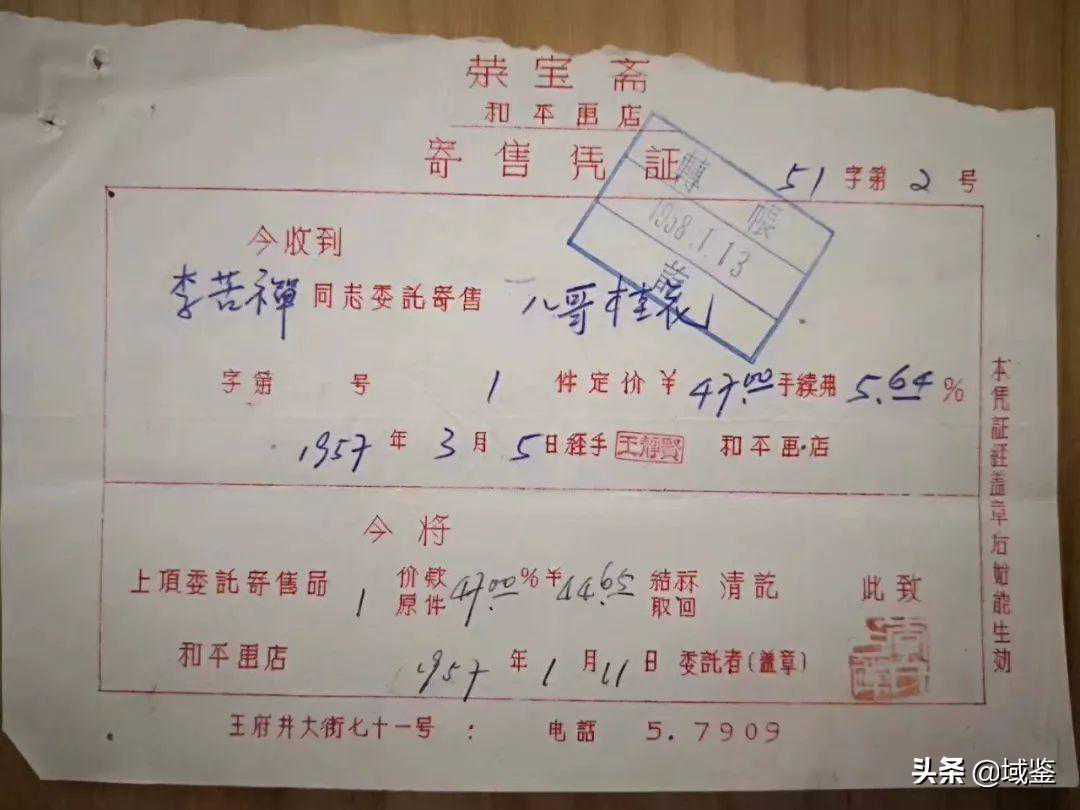 荣宝斋
和平画店
寄售凭証
51字第2号
轉帳
1958.1.13
今收到
李苦禪同志委託寄售 八哥
字第 号 1 件定价¥47.00手续弗5.64%
1957年3月5日经手 王靜賢 和平画店
今将
上項委託寄售品 1 价欵 原件 47.00%¥ 结 取回 清訖 此致
和平画店 1957年1月11日 委託者(盖章)
王府井大街七十一号: 电話 5.7909
本凭証经盖章后始能生効
头条@域鉴